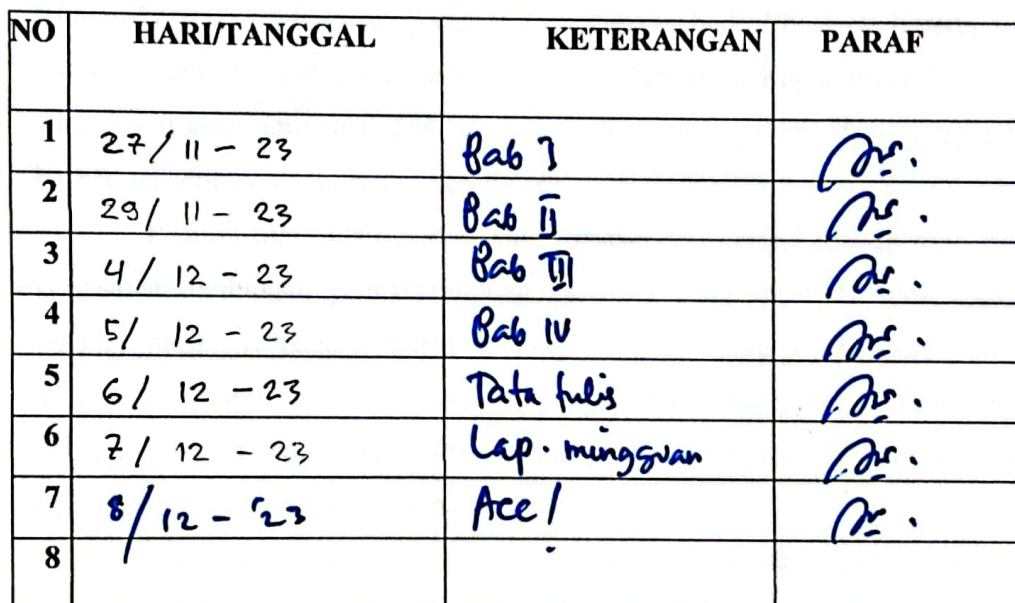 NO HARI/TANGGAL KETERANGAN PARAF
1 27/ 11 - 23 Bab I
2 29/ 11 - 23 Bab II
3 4/ 12 - 23 Bab III
4 5/ 12 - 23 Bab IV
5 6/ 12 - 23 Tata tulis
6 7/ 12 - 23 Lap. mingguan
7 8/12 - '23 Acc!
8